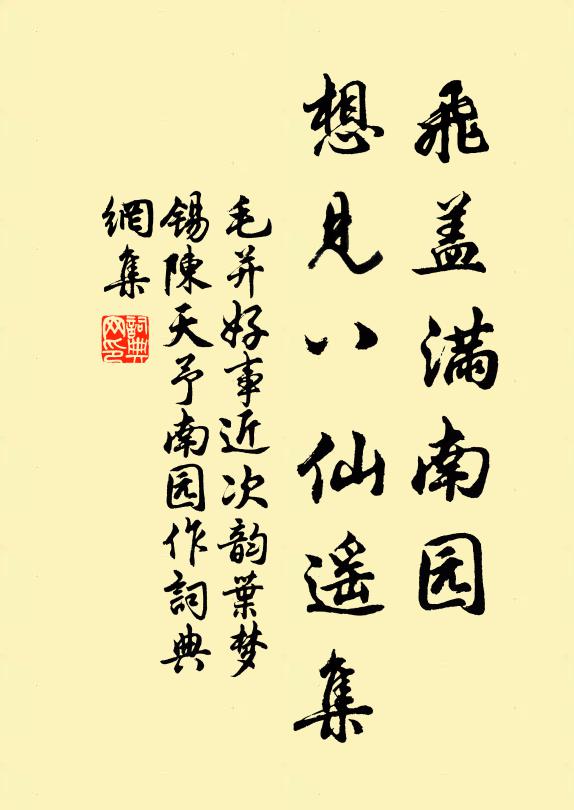 飛盖满南园
想見八仙遥集
毛并好事近次韵葉梦
锡陳天予南园作詞典
網集
詞典
网印